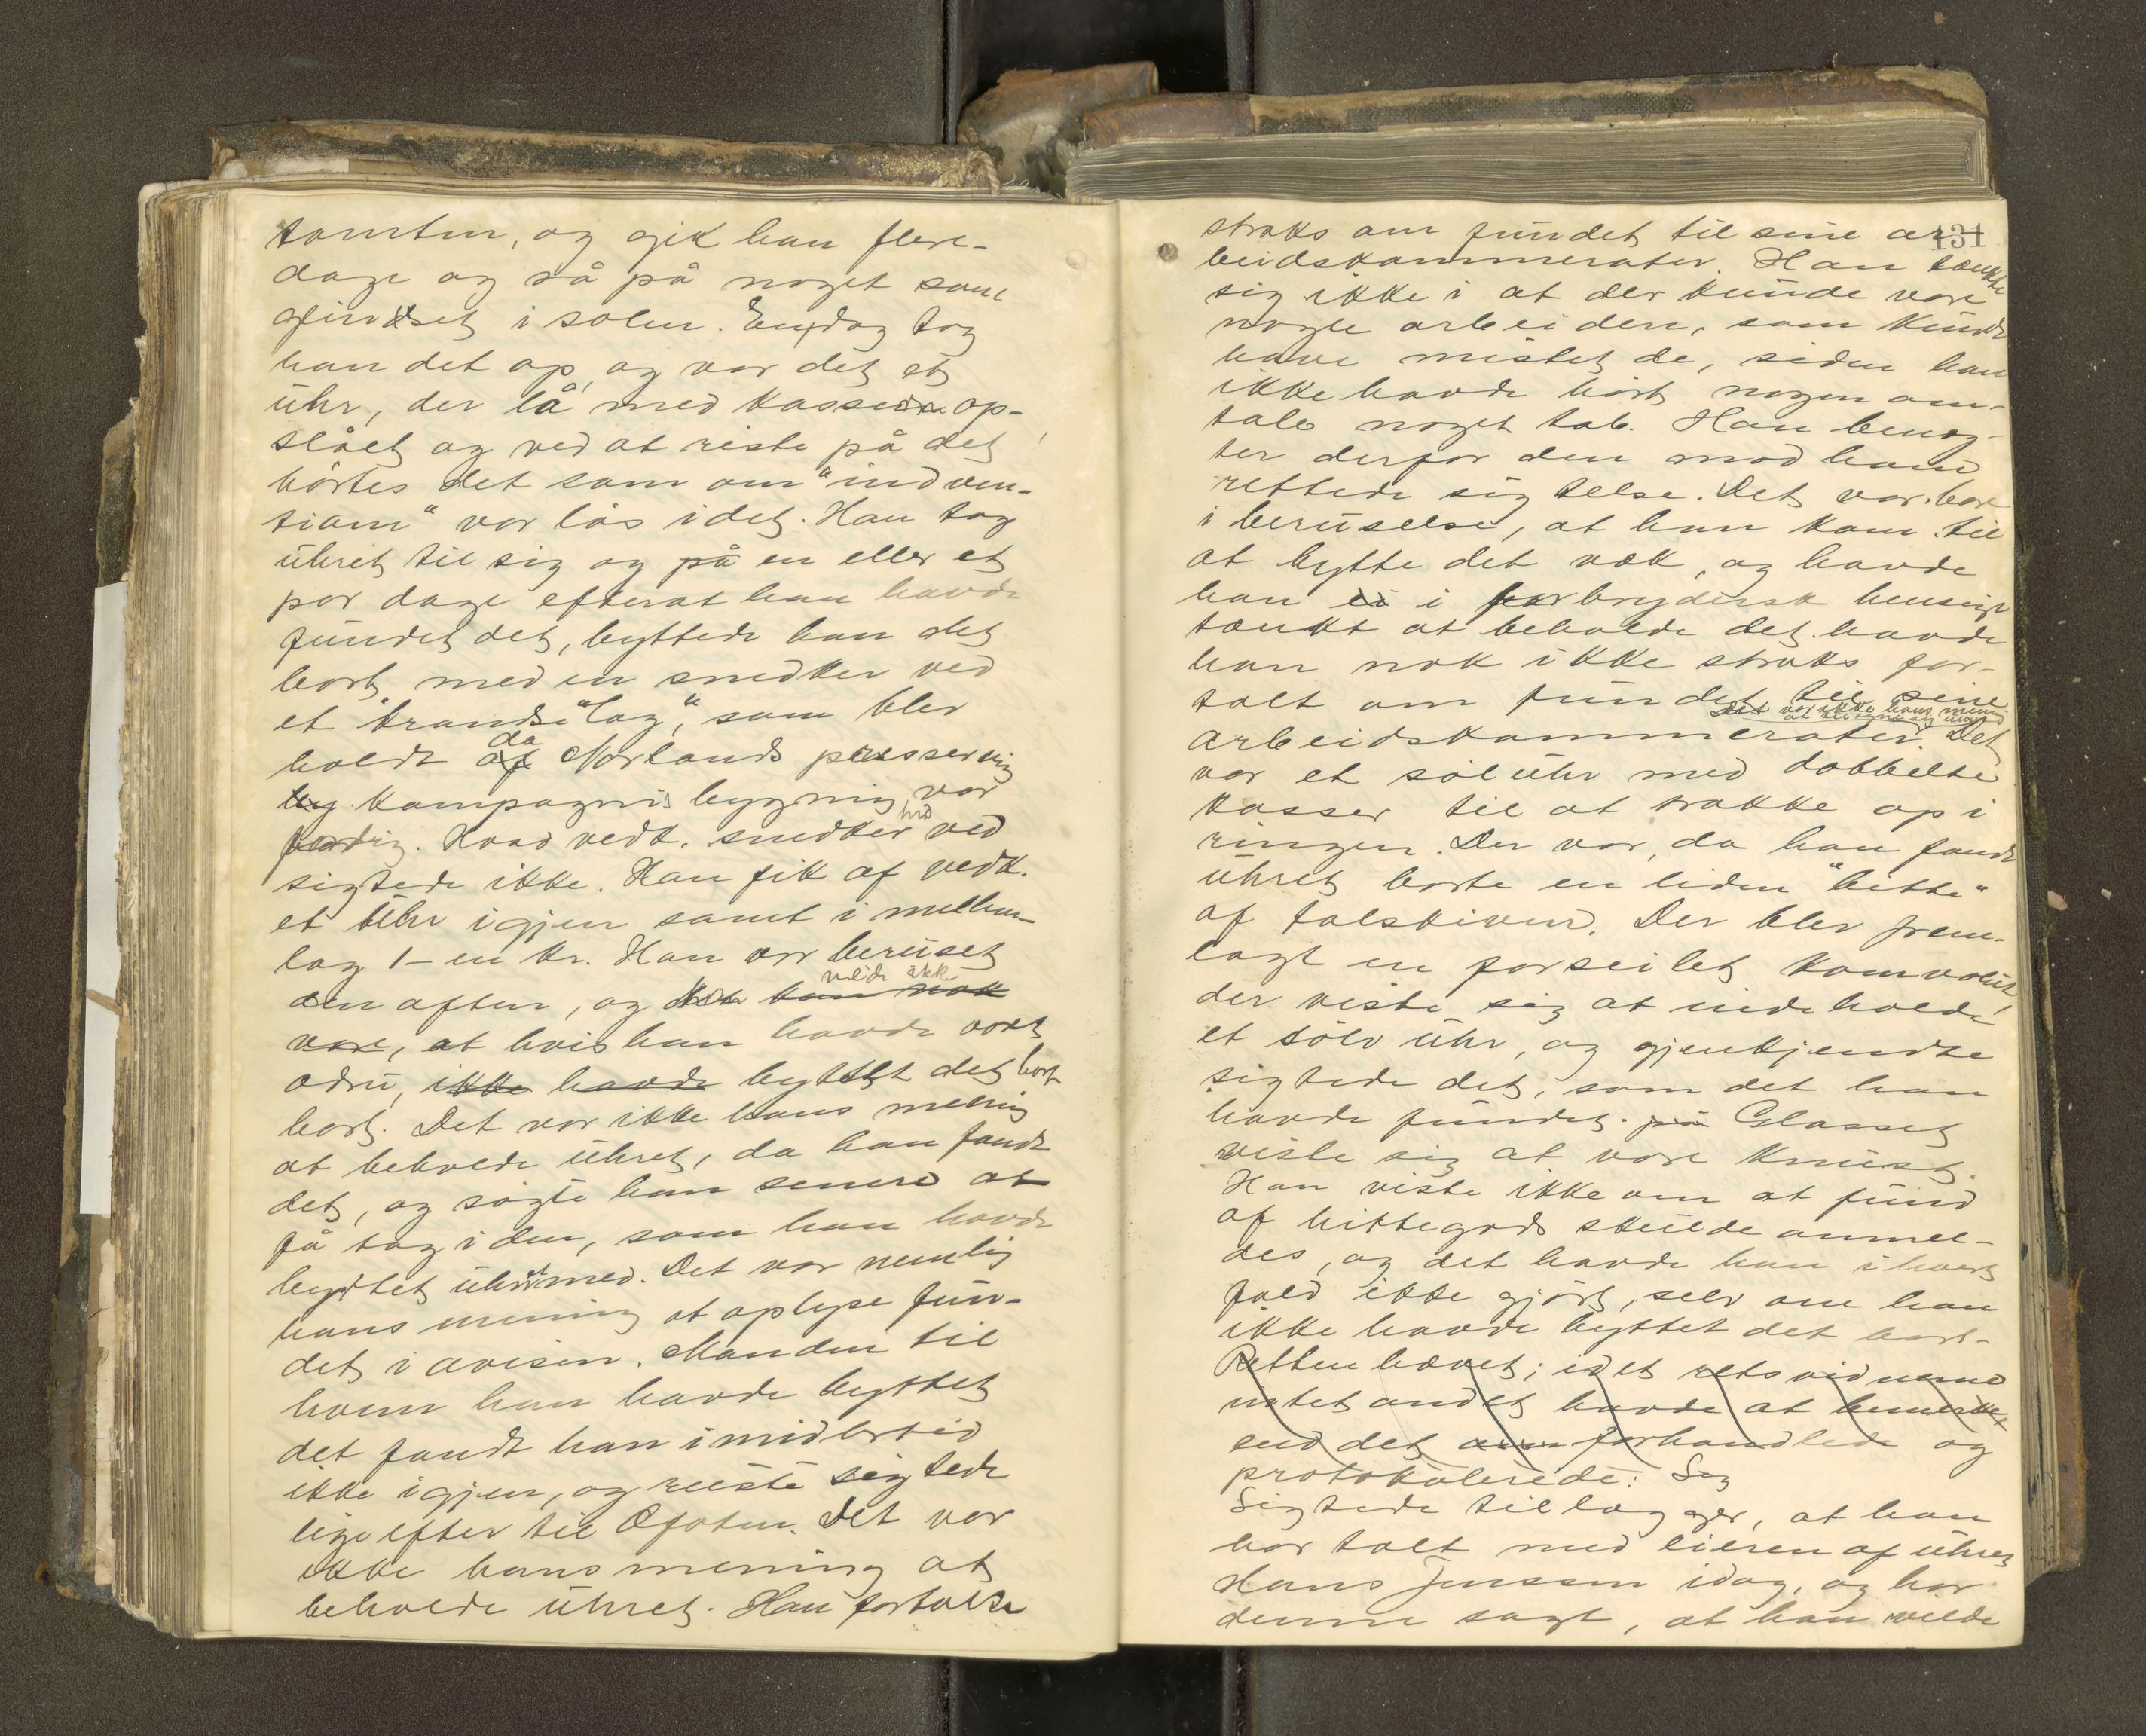 tomten, og gik han flere-
dage og så på noget som
glindset i solen. En dag tog
han det op, og var det et
uhr, der lå med kassen op-
slået og ved at riste på det
hørtes det som om "indven-
tiam" var løs i det. Han tog
uhret til sig og på en eller et
par dage efterat han havde
fundet det, byttede han det
bort med en snedker ved
et "krandselag", som blev
holdt da Norlands presserning
kompagnis bygning var
færdig. Hvad vedk. snedker hed ved
sigtede ikke. Han fik af vedk.
et uhr igjen samt i mellem-
lag 1 – en kr. Han var beruset
den aften, og vilde ikke han nok
være, at hvis han havde vært
ædru, ikke havde byttet det bort
bort. Det var ikke hans mening
at beholde uhret, da han fandt
det, og søgte han senere at
få tag i den, som han havde
byttet uhret med. Det var nemlig
hans mening at oplyse fun-
det i avisen. Manden til
hvem han havde byttet
det fandt han imidlertid
ikke igjen, og reiste sigtede
lige efter til Ofoten. Det var
ikke hans mening at
beholde uhret. Han fortalte
131
straks om fundet til sine ar-
beidskammerater. Han tænkte
sig ikke i at der kunde være
nogle arbeidere, som kunde
have mistet de, siden han
ikke havde hørt nogen om-
tale noget tab. Han benæg-
ter derfor den mod ham
rettede sigtelse. Det var bare
i beruselse, at han kom til
at bytte det væk, og havde
han i forbrydersk hensigt
tænkt at beholde det havde
han nok ikke straks for-
talt om fundet til sine
Det var ikke hans mening
at tilegne sig uhret
arbeidskammerater. Det
var et søluhr med dobbelte
kasser til at trække op i
ringen. Der var, da han fandt
uhret borte en liden "bitte"
af talskiven. Der blev frem-
lagt en forseilet konvolut,
der viste sig at indeholde
et sølv uhr, og gjenkjendte
sigtede det, som det han
havde fundet. Glasset
viste sig at være knust.
Han viste ikke om at fund
af hittegods skulde anmel-
des, og det havde han i hvert
fald ikke gjort, selv om han
ikke havde byttet det bort.
Retten hævet; idet retsvidnerne
intet andet havde at bemerke
end det forhandlede og
protokolerede: Sag
Sigtede tillægger, at han
har talt med eieren af uhret
Hans Jenssen idag, og har
denne sagt, at han vilde